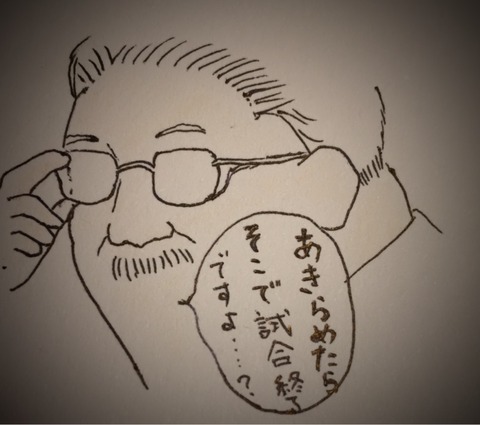 あきらめたら
そこで試合終了
ですよ…?